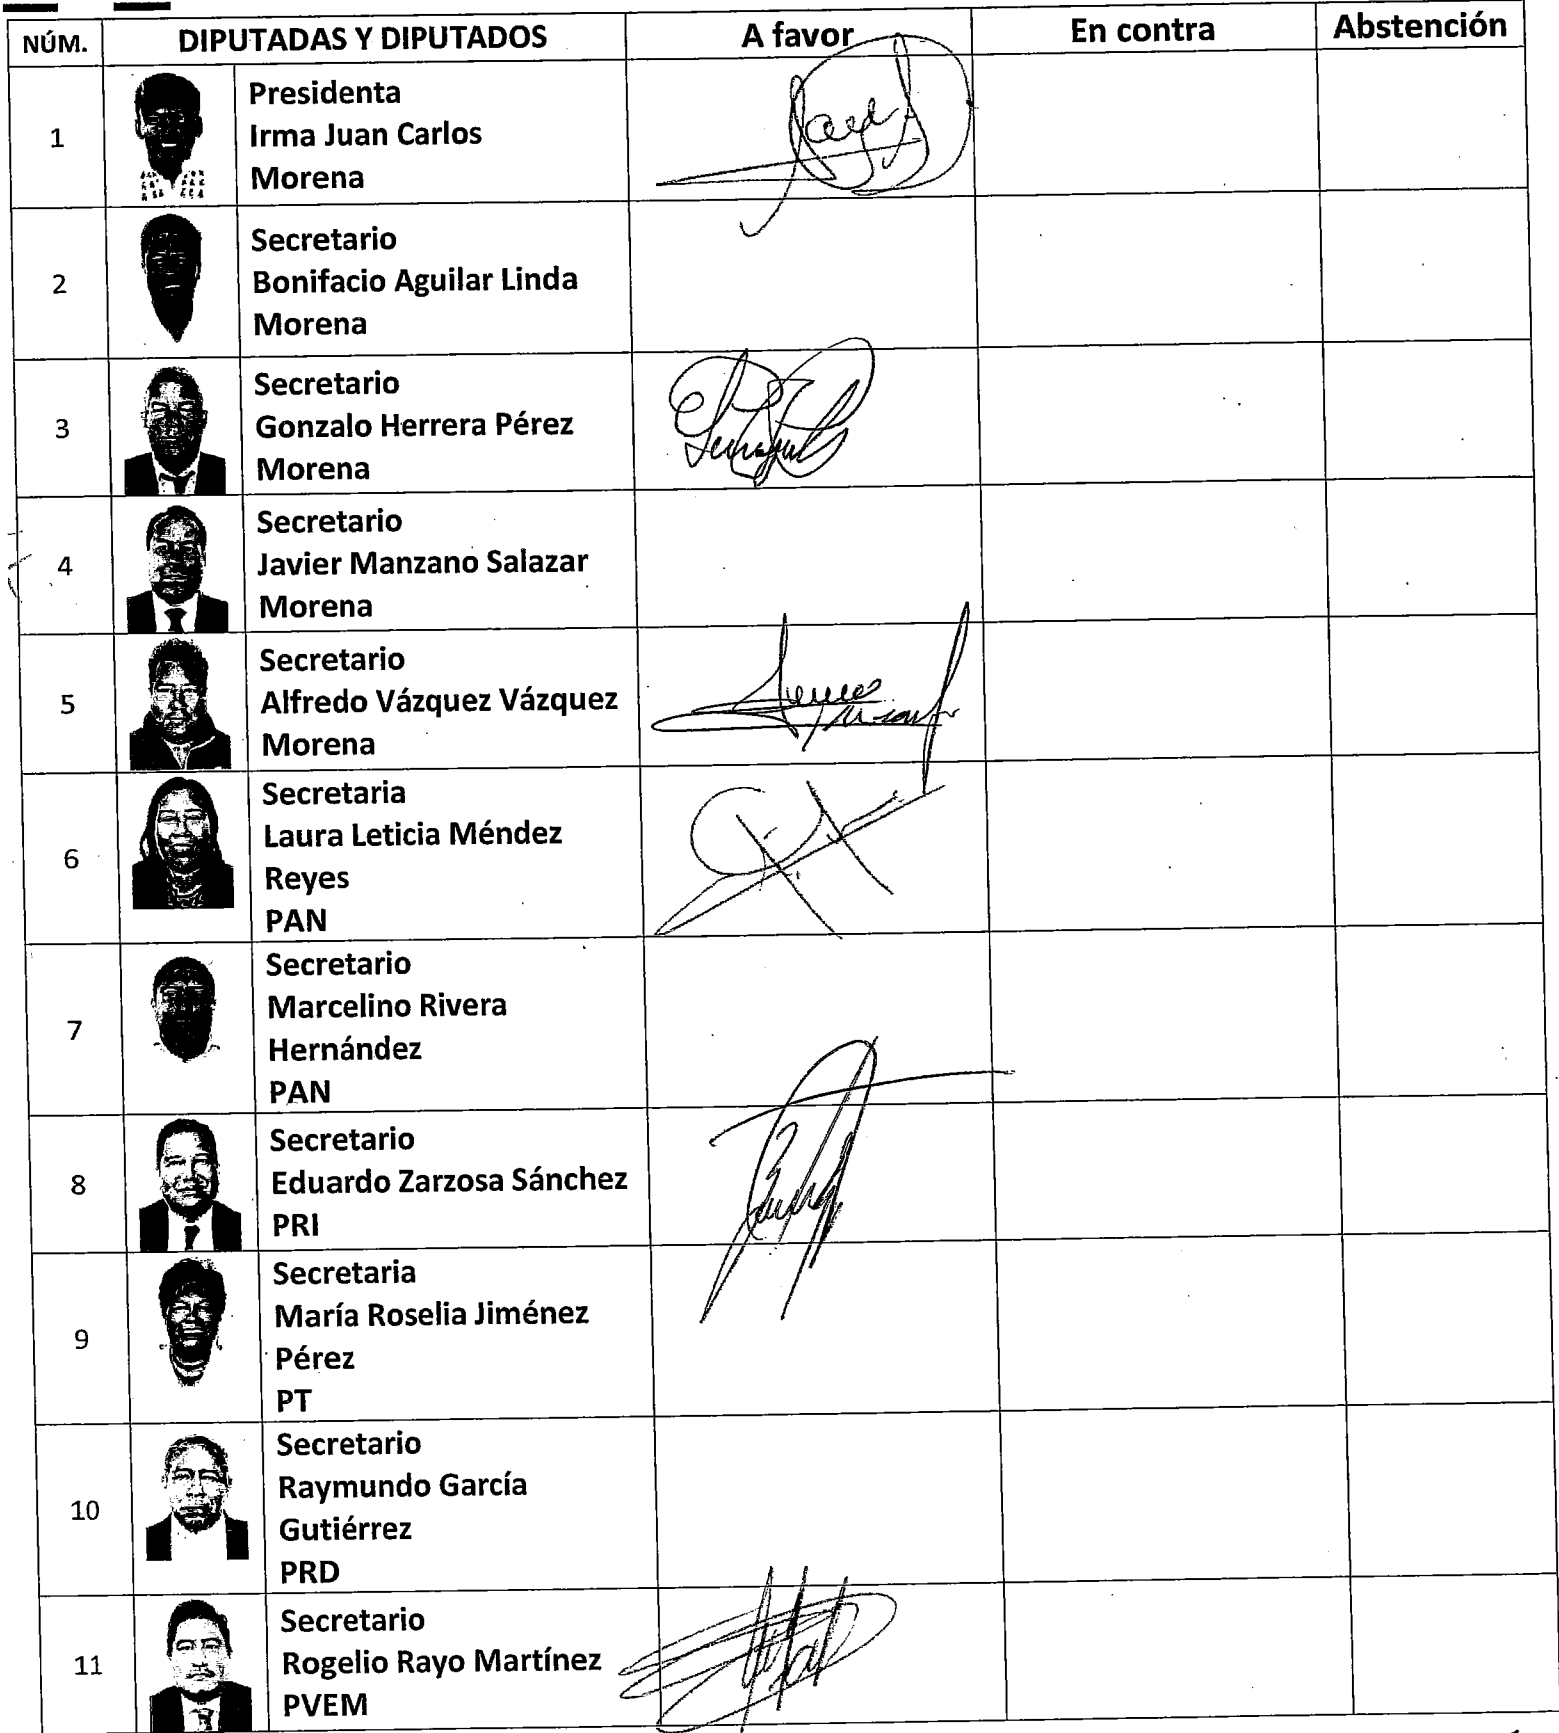 NÚM. DIPUTADAS Y DIPUTADOS A favor En contra Abstención
1
Presidenta
Irma Juan Carlos
Morena
2
Secretario
Bonifacio Aguilar Linda
Morena
3
Secretario
Gonzalo Herrera Pérez
Morena
4
Secretario
Javier Manzano Salazar
Morena
5
Secretario
Alfredo Vázquez Vázquez
Morena
6
Secretaria
Laura Leticia Méndez
Reyes
PAN
7
Secretario
Marcelino Rivera
Hernández
PAN
8
Secretario
Eduardo Zarzosa Sánchez
PRI
9
Secretaria
María Roselia Jiménez
Pérez
PT
10
Secretario
Raymundo García
Gutiérrez
PRD
11
Secretario
Rogelio Rayo Martínez
PVEM